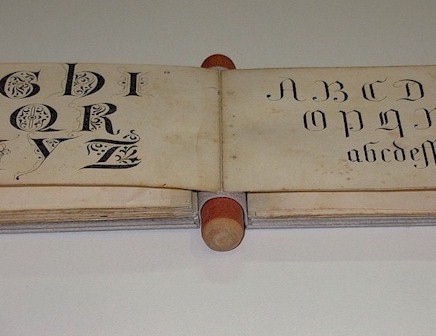 G H I
Q R
Y Z
A B C D
O P Q R
abcdef